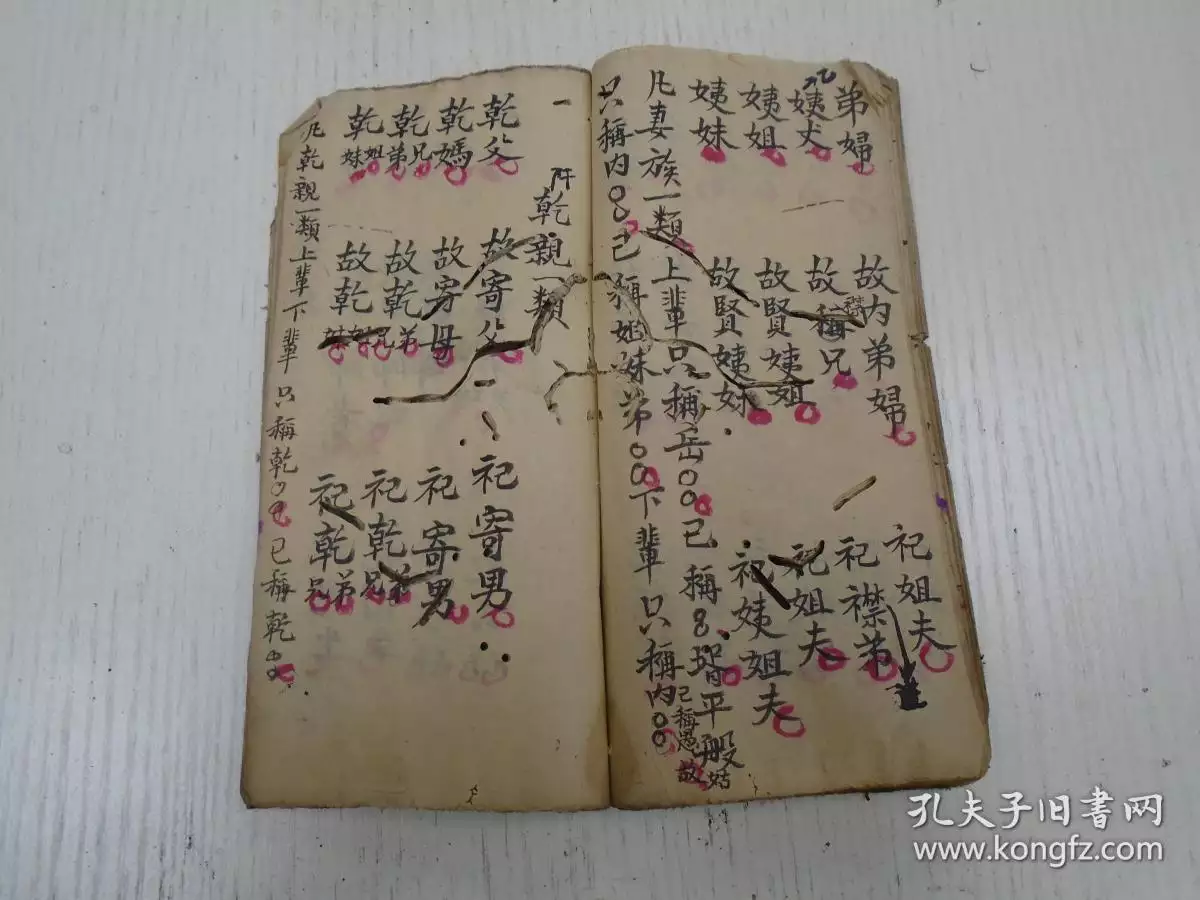 弟婦 故内弟婦 祀姐夫
姨丈 故襟兄 祀襟弟
姨姐 故賢姨姐 祀姐夫
姨妹 故賢姨妹 祀姨姐夫
凡妻族一類上輩只稱岳〇〇己稱〇壻平般
只稱内〇〇己稱姐妹弟〇〇下輩只稱内〇〇
己稱愚故
一 乾親一類
乾父 故寄父 祀寄男
乾媽 故寄母 祀寄男
乾兄弟 故乾兄弟 祀乾兄弟
乾姐妹 故乾姐妹 祀乾兄弟
凡乾親一類上輩下輩只稱乾〇〇己稱乾〇〇
孔夫子旧書网
www.kongfz.com